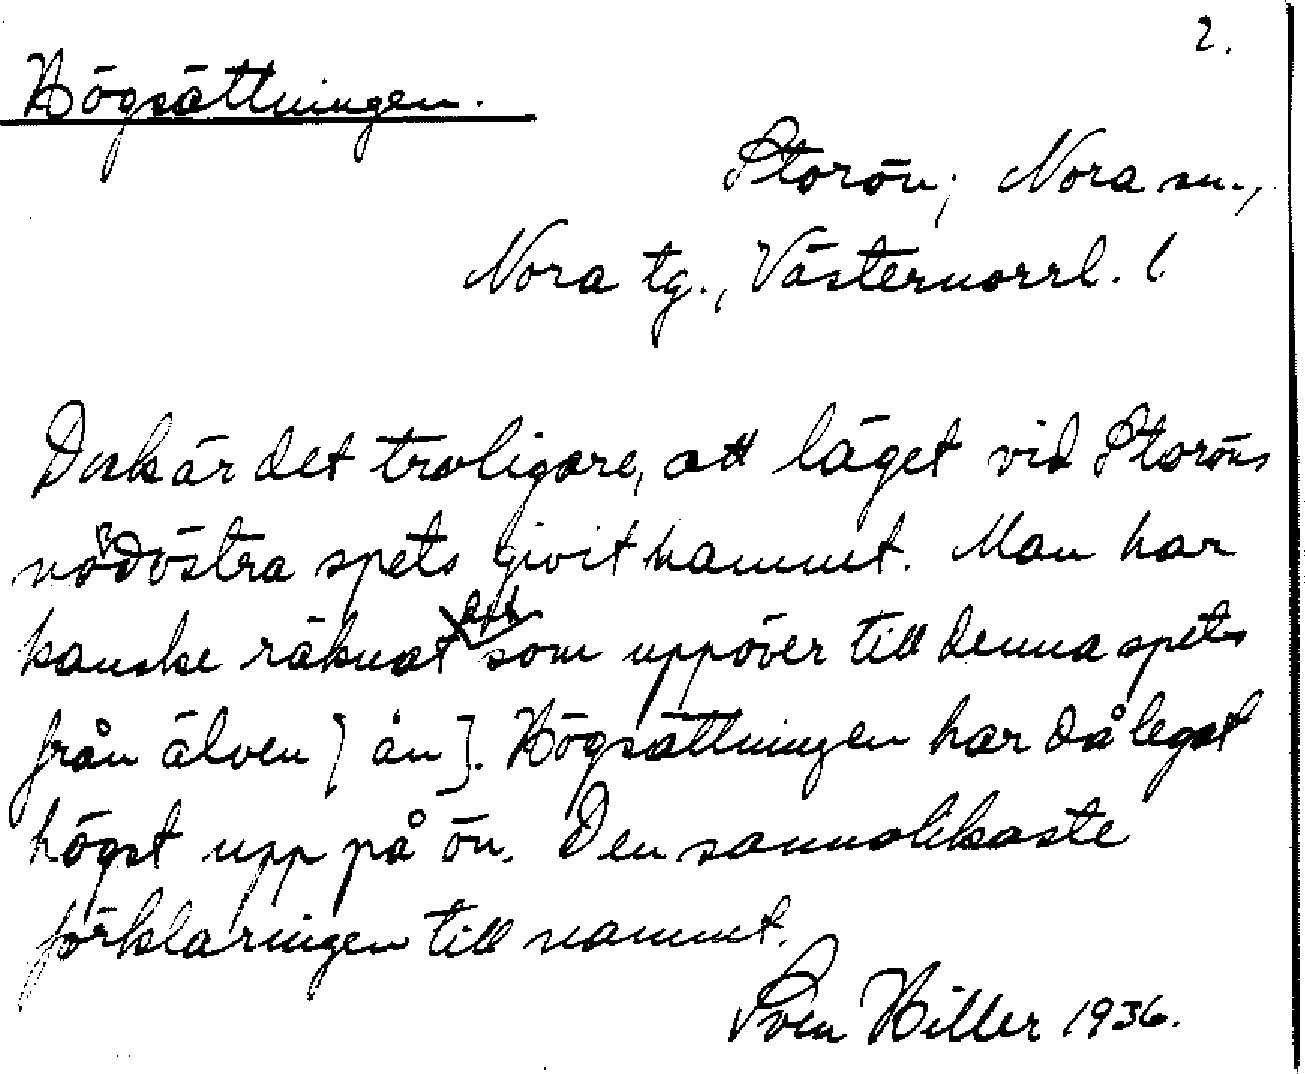 2.
Högsättningen.
Storön; Nora sn.,
Nora tg., Västernorrl. l
Dock är det troligare, att läget vid Storöns
nordöstra spets givit namnet. Man har
kanske räknat att som uppöver till denna spets
från älven [ån]. Högsättningen har då legat
högst upp på ön. Den sannolikaste
förklaringen till namnet.
Sven Hiller 1936.